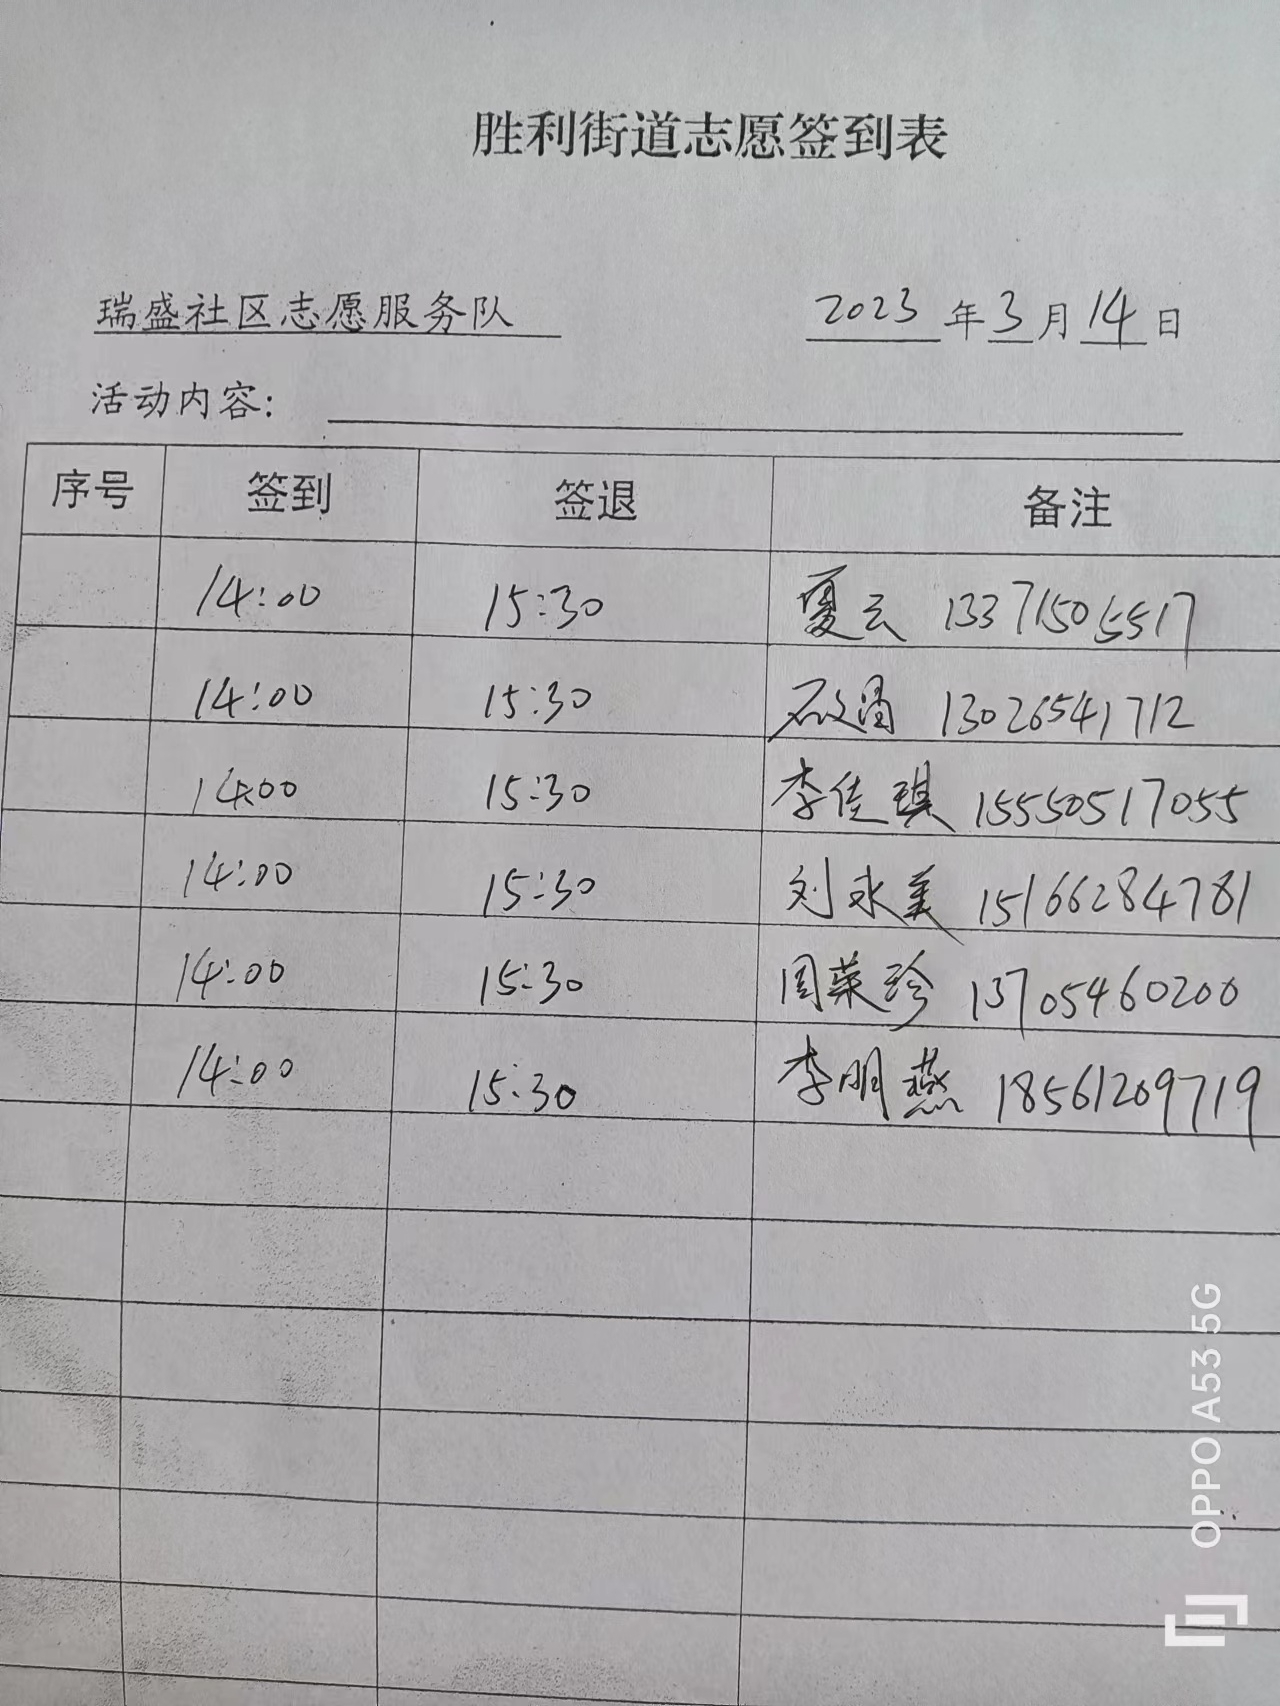 胜利街道志愿签到表
瑞盛社区志愿服务队 2023年3月14日
活动内容:
序号 签到 签退 备注
14:00 15:30 夏云 13371505517
14:00 15:30 13026541712
14:00 15:30 李佳琪 15550517055
14:00 15:30 刘永美 15166284781
14:00 15:30 周荣珍 13705460200
14:00 15:30 李明燕 18561209719
OPPO A53 5G